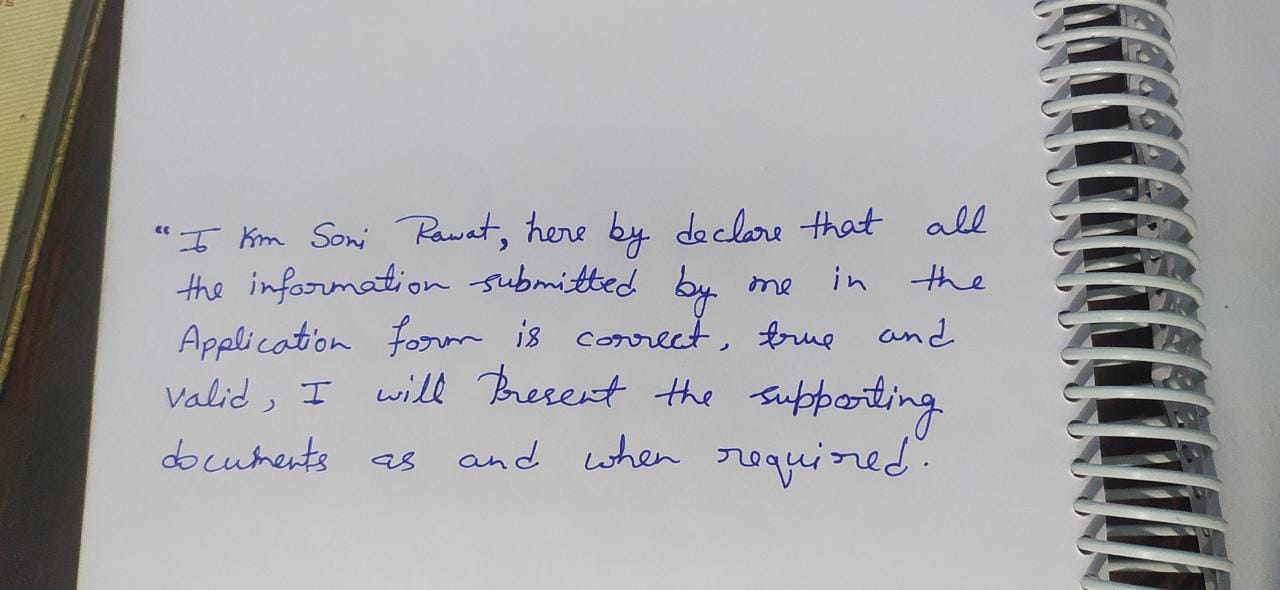 “I Km Soni Rawat, here by declare that all
the information submitted by me in the
Application form is correct, true and
valid, I will Present the supporting
documents as and when required.